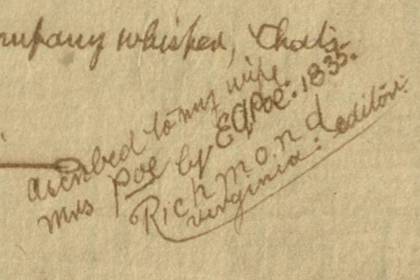 company whisper, Chats
ascribed to my wife
Mrs Poe by EAPoe. 1835.
Richmond
virginia: editor: